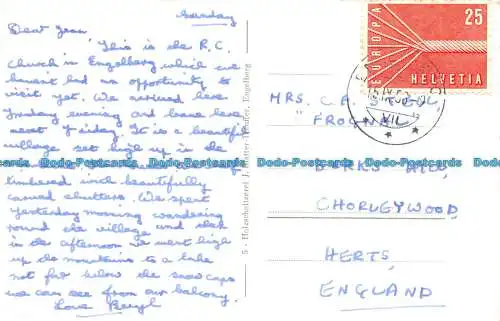 Sunday
Dear Jean,
This is the R.C.
Church in Engelberg which we
havent had an opportunity to
visit yet. We arrived here
Tuesday evening and leave here
next Friday. It is a beautiful
village set high up in the
timbered with beautifully
carved shutters. We spent
yesterday morning wandering
round the village and
in the afternoon we went high
up the mountains to a lake
not far below the snow caps
we can see from our balcony.
Love Beryl
5 - Holzschnitzerei J. Engelberg
EUROPA
25
HELVETIA
MRS. C. A.
"FROGNAL"
CHORLEYWOOD
HERTS,
ENGLAND
Dodo-Postcards Dodo-Postcards Dodo-Postcards Dodo-Postcards